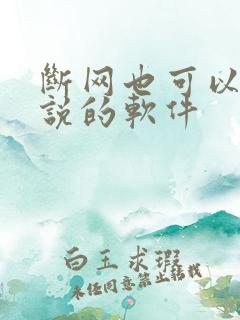 斷网也可以
説的軟件
白玉求瑕
未经同意禁止转载